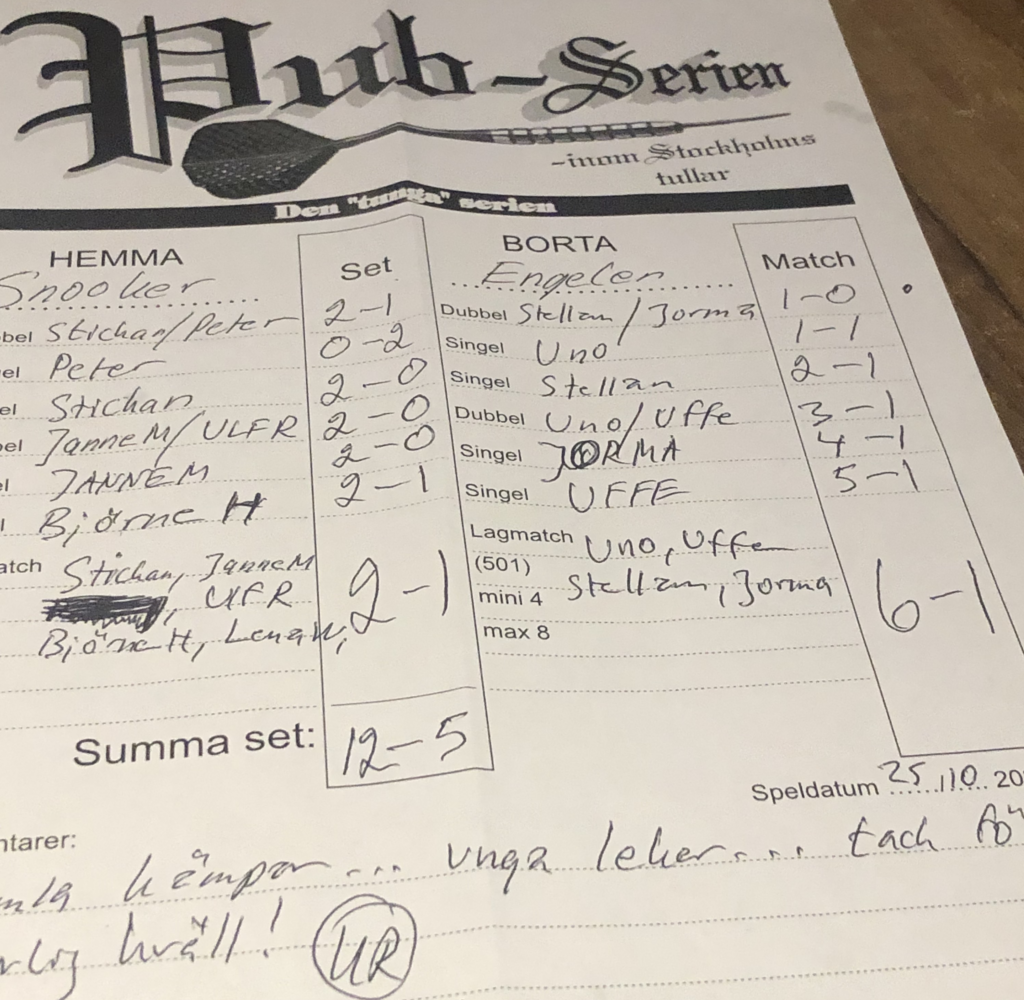 Pub-Serien
-inom Stockholms
tullar
Den "tunga" serien
HEMMA Set BORTA Match
Snooker Engelen
bel Stichan/Peter 2-1 Dubbel Stellan/Jorma 1-0
el Peter 0-2 Singel Uno 1-1
el Stichan 2-0 Singel Stellan 2-1
el JanneM/ULFR 2-0 Dubbel Uno/Uffe 3-1
l JANNEM 2-0 Singel JORMA 4-1
l Björne H 2-1 Singel UFFE 5-1
atch Stichan, JanneM 2-1 Lagmatch Uno, Uffe 6-1
, UFR (501) Stellan, Jorma
Björne H, mini 4
max 8
Summa set: 12-5
Speldatum 25/10 20
ntarer:
mla kämpar... unga leker.... tack fö
hväll! UR